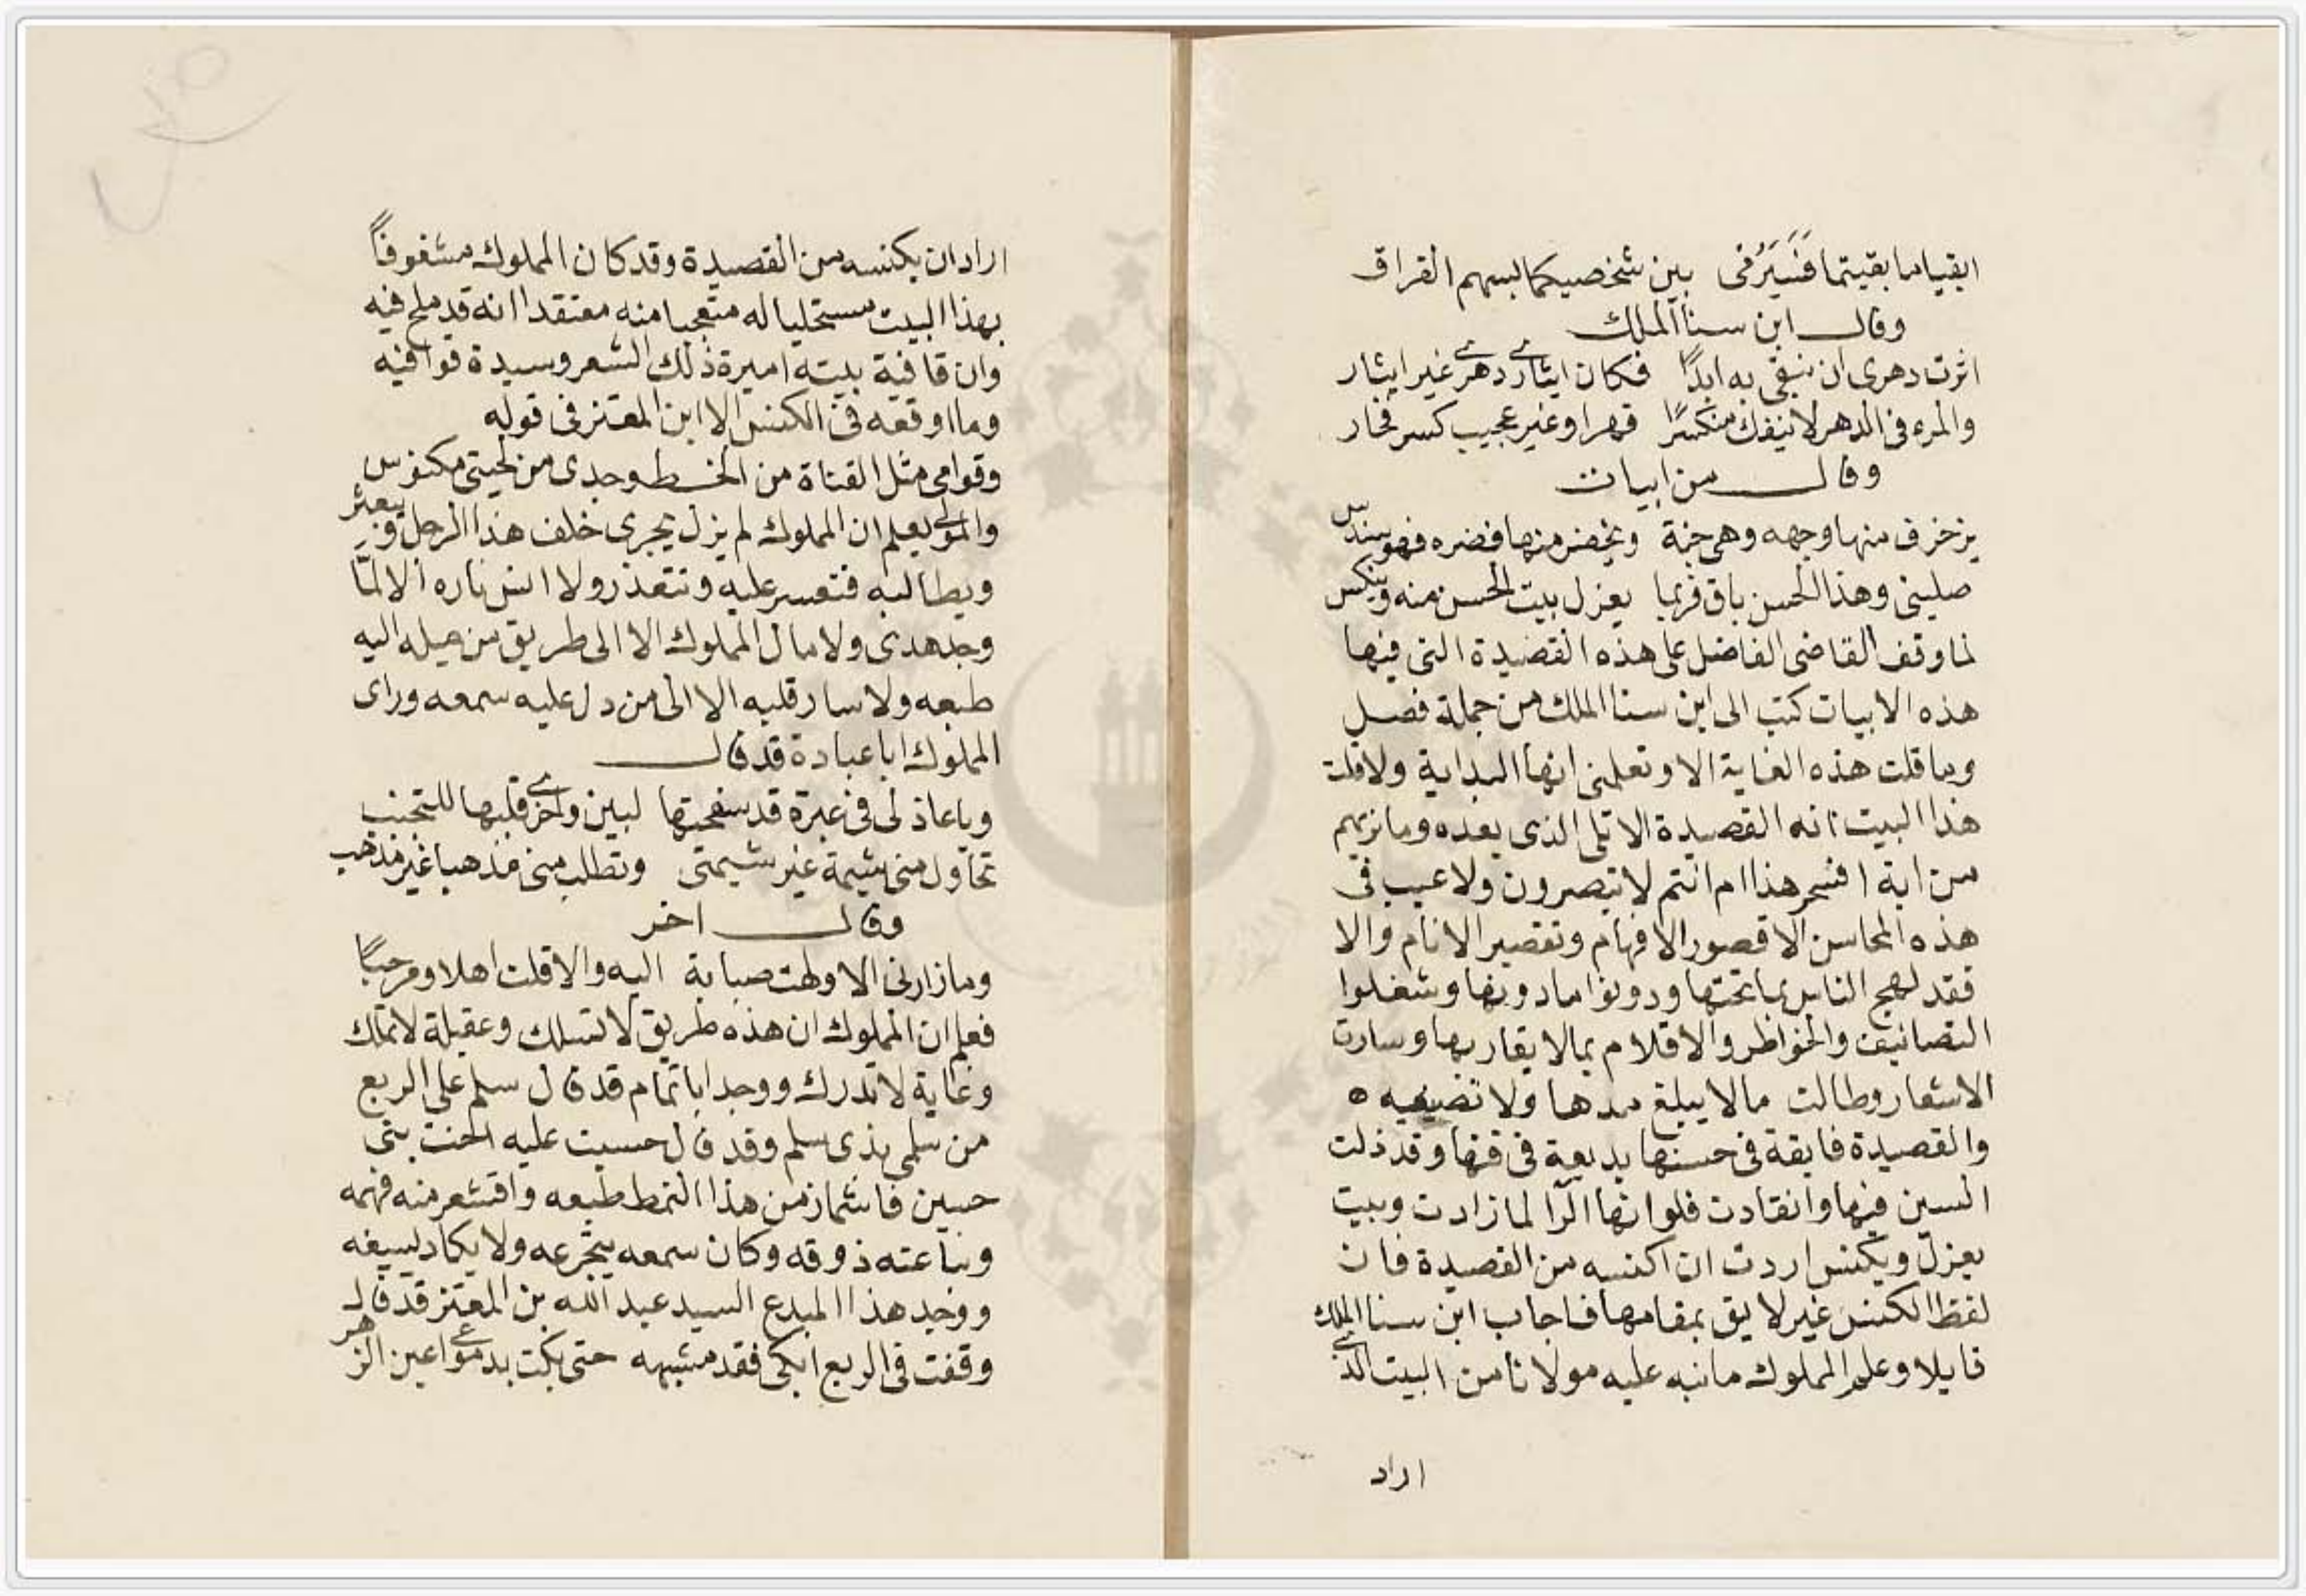 ابقيا ما بقيتما فَسَيَرْمى بين شخصيكما بسهم الفراق
وقال ابن سنا الملك
اثرت دهرى ان نبقى به ابدًا فكان ايثار دهرى غير ايثار
والمرء فى الدهر لا ينفك منكسرًا قهرا وغير عجيب كسر فخار
وقال من ابيات
يزخرف منها وجهه وهى جنة ويخضر منها فهو سندس
صلينى وهذا الحسن باق فربما يعزل بيت الحسن منه ويكنس
لما وقف القاضى الفاضل على هذه القصيدة التى فيها
هذه الابيات كتب الى ابن سنا الملك من جملة فصل
وما قلت هذه الغاية الا وتعلمنى انها البداية ولا قلت
هذا البيت انه القصيدة الا تلى الذى بعده وما نريهم
من اية افسحر هذا ام انتم لا تبصرون ولا عيب فى
هذه المحاسن الا قصور الافهام وتقصير الانام والا
فقد لهج الناس بما تحتها ودونوا ما دونها وشغلوا
التصانيف والخواطر والاقلام بما لا يقاربها وسارت
الاشعار وطالت مالا يبلغ مدها ولا نصيفه ٥
والقصيدة فايقة فى حسنها بديعة فى فنها وقد ذلت
السين فيها وانقادت فلو انها الرا لما زادت وبيت
يعزل ويكنس اردت ان اكنسه من القصيدة فان
لفظ الكنس غير لايق بمقامها فاجاب ابن سنا الملك
قايلا وعلم المملوك ما نبه عليه مولانا من البيت الذى
اراد
اراد ان يكنسه من القصيدة وقد كان المملوك مشغوفاً
بهذا البيت مستحليا له متعجبا منه معتقدا انه قد ملح فيه
وان قافية بيته اميرة ذلك الشعر وسيدة قوافيه
وما اوقعه فى الكنس الا ابن المعتز فى قوله
وقوامى مثل القناة من الخـط وخدى من لحيتى مكنوس
والمولى يعلم ان المملوك لم يزل يجرى خلف هذا الرجل ويتعثر
ويطالبه فتعسر عليه وتتعذر ولا انس ناره الا لمّا
وجد هدى ولا مال المملوك الا الى طريق من ميله اليه
طبعه ولا سار قلبه الا الى من دل عليه سمعه وراى
المملوك ابا عبادة قد قال
ويا عاذلى فى عبرة قد سفحتها لبين واخرى قبلها للتجنب
تحاول منى شيمة غير شيمتى وتطلب منى مذهبا غير مذهب
وقال اخر
وما زارنى الا ولهت صبابة اليه والا قلت اهلا ومرحبًا
فعلم ان المملوك ان هذه طريق لا تسلك وعقيلة لا تملك
وغاية لا تدرك ووجد ابا تمام قد قال سلم على الربع
من سلمى بذى سلم وقد قال خسنت عليه اخت بنى
خسين فاشماز من هذا النمط طبعه واقشعر منه فهمه
ونبا عنه ذوقه وكان سمعه يتجرعه ولا يكاد يسيغه
ووجد هذا المبدع السيد عبد الله بن المعتز قد قال
وقفت فى الربع ابكى فقد مشبهه حتى بكت بدموعى اعين الزهر